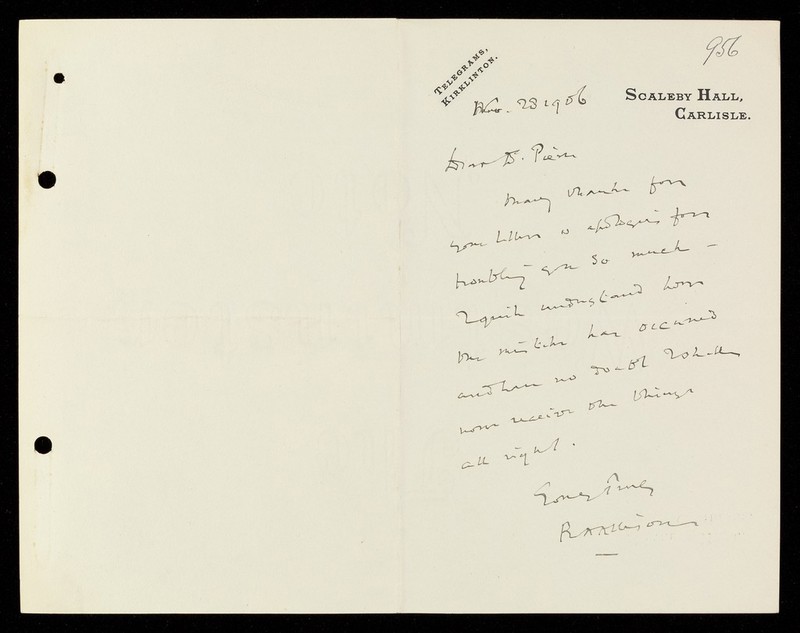 956
TELEGRAMS,
KIRKLINTON.
SCALEBY HALL,
CARLISLE.
Nov. 23 1906
Dear Dr. Pierce
Many thanks for
your letter & apologies for
troubling you so much –
I quite understand how
the mistake has occurred
and have no doubt I shall
now receive the things
all right.
Yours truly
R A Allison